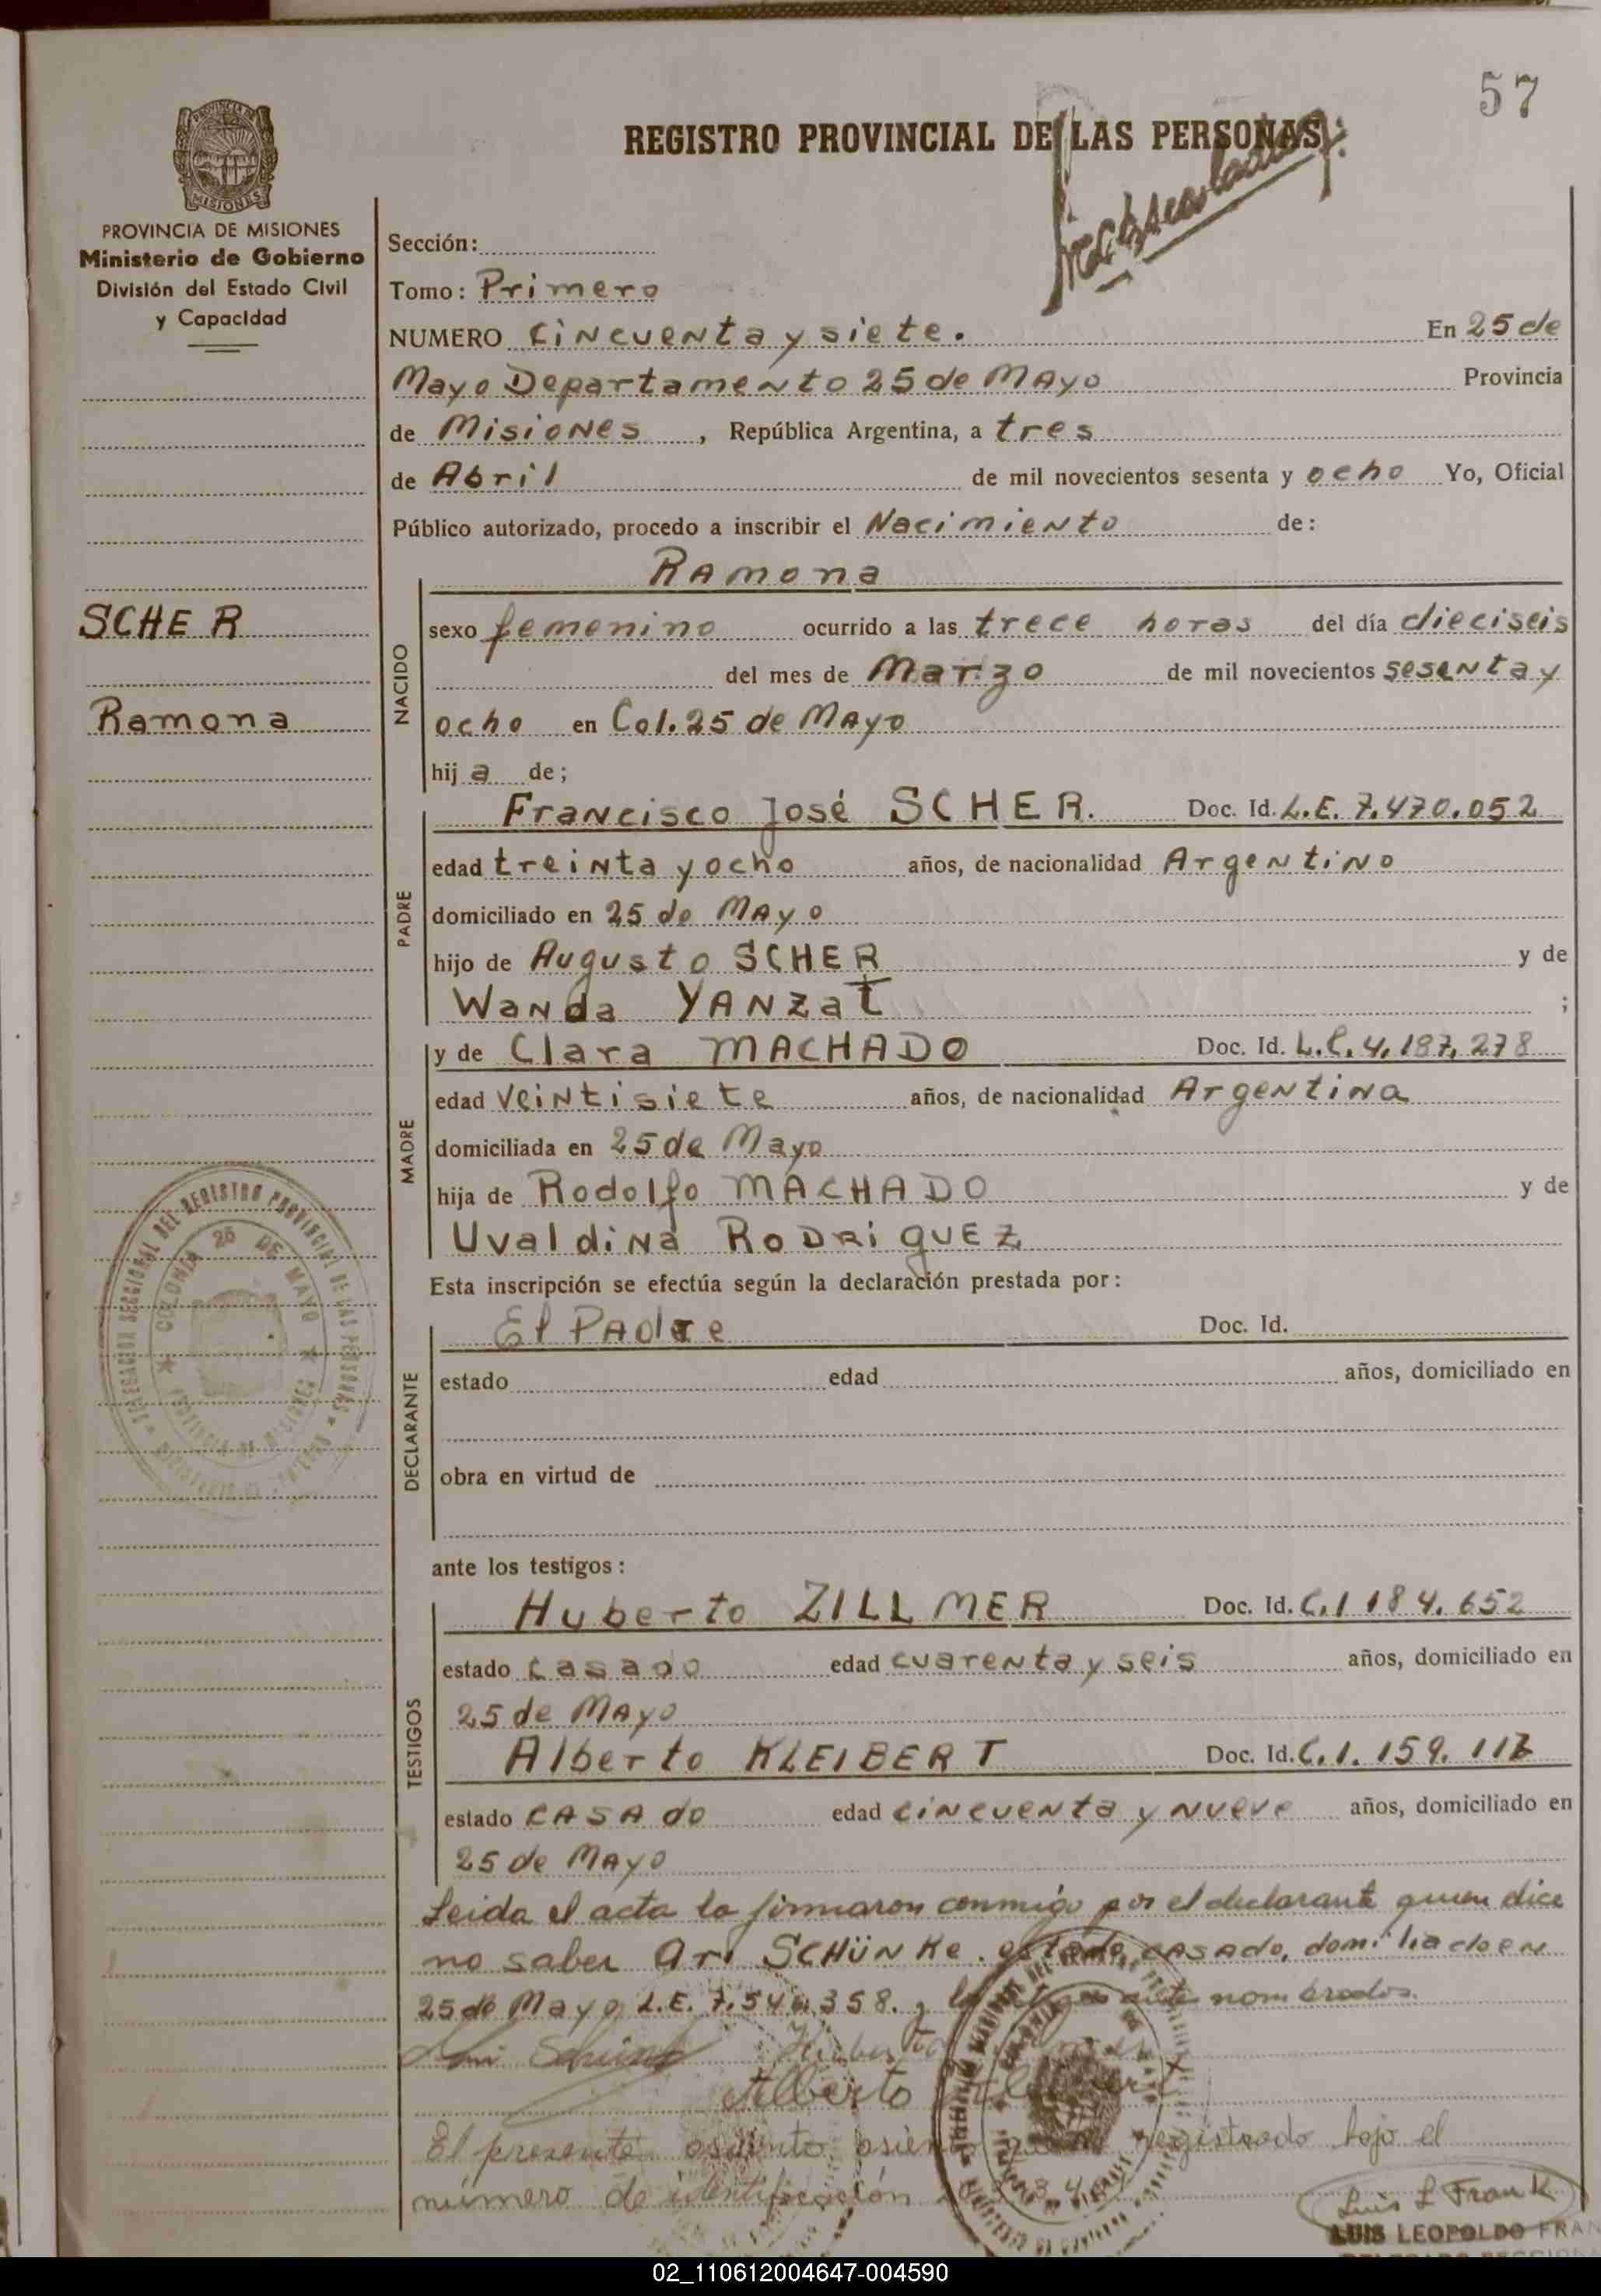 57
REGISTRO PROVINCIAL DE LAS PERSONAS
PROVINCIA DE MISIONES
MISIONES
PROVINCIA DE MISIONES
Ministerio de Gobierno
División del Estado Civil
y Capacidad
Sección:
Tomo: Primero
NUMERO Cincuenta y siete. En 25 de
Mayo Departamento 25 de Mayo Provincia
de Misiones, República Argentina, a tres
de Abril de mil novecientos sesenta y ocho Yo, Oficial
Público autorizado, procedo a inscribir el Nacimiento de:
SCHER
Ramona
NACIDO
Ramona
sexo femenino ocurrido a las trece horas del día dieciseis
del mes de Marzo de mil novecientos sesenta y
ocho en Col. 25 de Mayo
hija de;
PADRE
Francisco José SCHER. Doc. Id. L.E. 7.470.052
edad treinta y ocho años, de nacionalidad Argentino
domiciliado en 25 de Mayo
hijo de Augusto SCHER y de
Wanda YANZat ;
MADRE
y de Clara MACHADO Doc. Id. L.C. 4.187.278
edad veintisiete años, de nacionalidad Argentina
domiciliada en 25 de Mayo
hija de Rodolfo MACHADO y de
Uvaldina RODRiguEZ
Esta inscripción se efectúa según la declaración prestada por:
DECLARANTE
El Padre Doc. Id.
estado edad años, domiciliado en
obra en virtud de
DELEGACION SECCIONAL DEL REGISTRO PROVINCIAL DE LAS PERSONAS
COLONIA 25 DE MAYO
PROVINCIA DE MISIONES
ante los testigos:
TESTIGOS
Huberto ZILLMER Doc. Id. C.I 184.652
estado casado edad cuarenta y seis años, domiciliado en
25 de Mayo
Alberto KLEIBERT Doc. Id. C.I. 159.117
estado CASAdo edad cincuenta y nueve años, domiciliado en
25 de Mayo
Leida el acta la firmaron conmigo por el declarante quien dice
no saber Ari SCHÜNKe. estado casado, domiliado en
25 de Mayo L.E. 7.546.358. y nombrados.
Alberto
El presente asiento registrado bajo el
número de identificación
Luis L Frank
LUIS LEOPOLDO FRAN
02_110612004647-004590